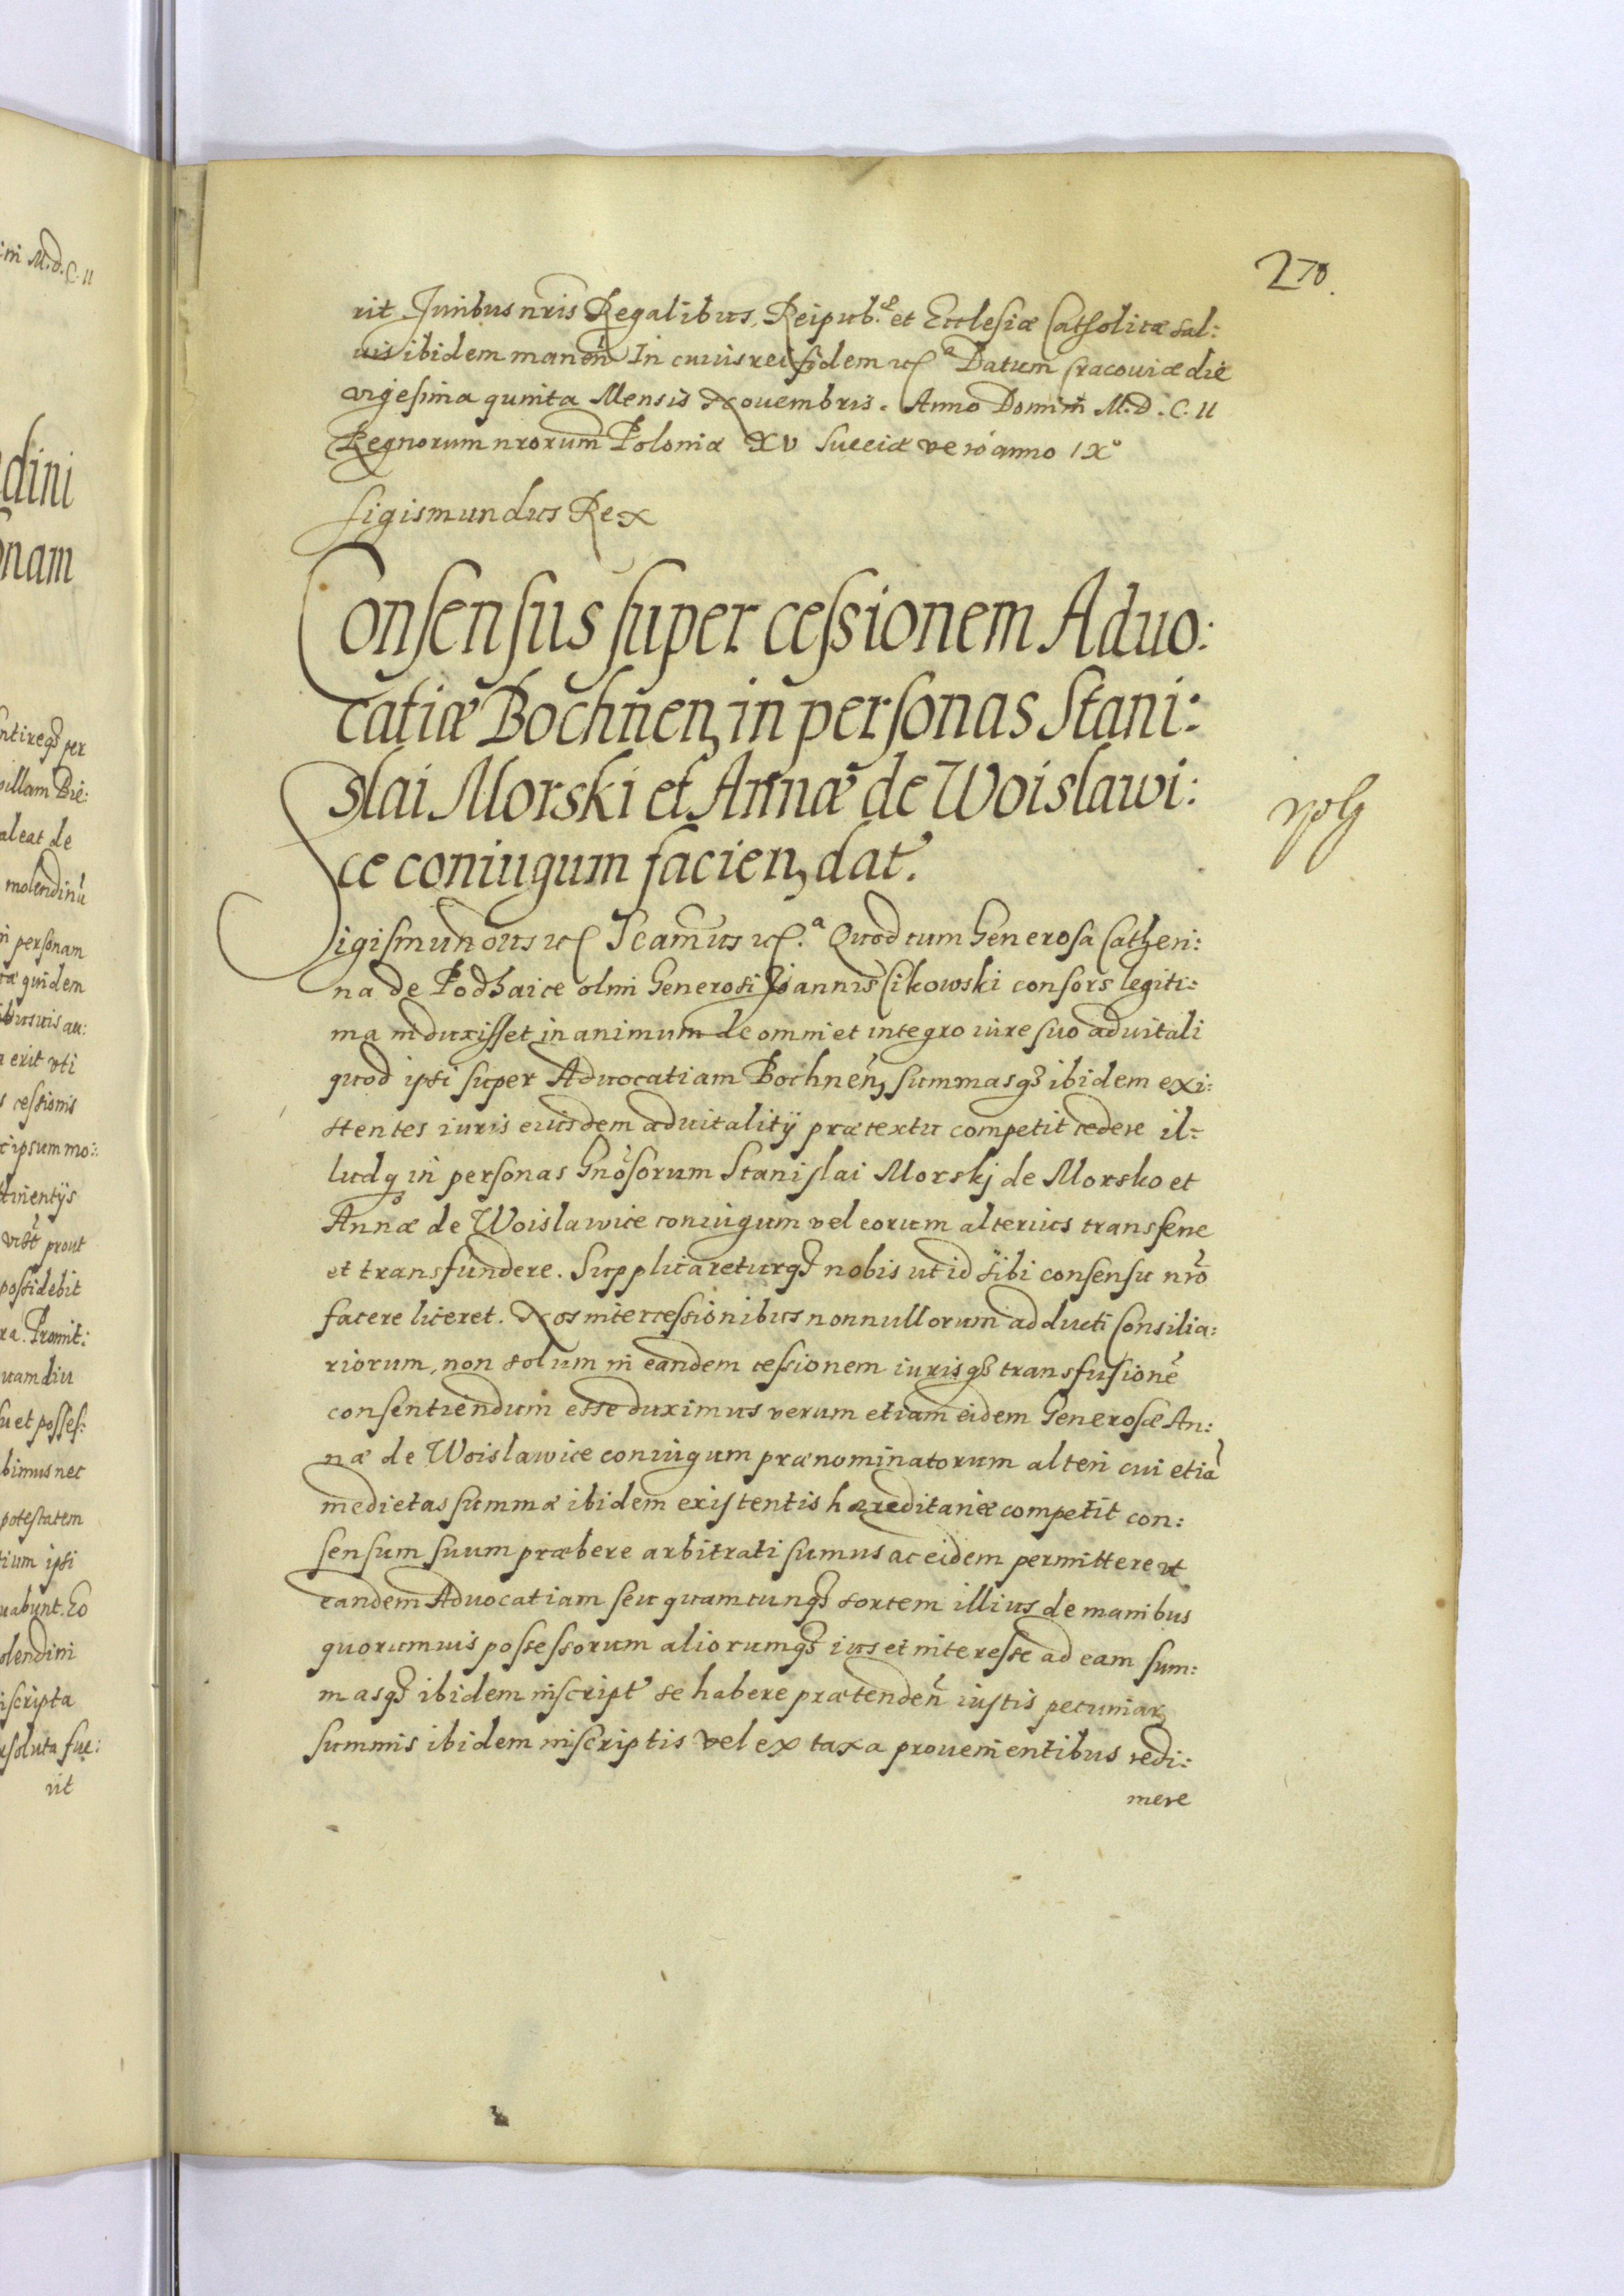 270.
rit Juribus nris Regalibus, Reipub.æ et Ecclesiæ Catholicæ sal:
uis ibidem maneñ In cuius rei fidem etc.ª Datum Cracouiæ die
vigesima quinta Mensis Nouembris. Anno Domini M.D.C.II
Regnorum nrorum Poloniæ XV Sueciæ vero anno IXº
Sigismundus Rex
Consensus super cessionem Aduo:
catiæ Bochnen, in personas Stani:
slai Morski et Annæ de Woislawi:
ce coniugum facien, dat.
Sigismundus etc. Scamus etc.ª Quod cum Generosa Catheri:
na de Podhaice olim Generosi Joannis Cikowski consors legiti:
ma induxisset in animum de omni et integro iure suo aduitali
quod ipsi super Aduocatiam Bochneñ, summasq3 ibidem exi:
stentes iuris eiusdem aduitalitÿ prætextu competit cedere il:
ludq3 in personas Gnosorum Stanislai Morskj de Morsko et
Annæ de Woislawice coniugum vel eorum alterius transfere
et transfundere. Supplicareturq3 nobis ut id sibi consensu nrõ
facere liceret. Nos intercessionibus nonnullorum adducti Consilia:
riorum, non solum in eandem cessionem iurisq3 transfusionẽ
consentiendum esse duximus verum etiam eidem Generosæ An:
næ de Woislawice coniugum prænominatorum alteri cui etiã
medietas summæ ibidem existentis hæreditariæ competit con:
sensum suum præbere arbitrati sumus ac eidem permittere ut
eandem Aduocatiam seu quamcunq3 sortem illius de manibus
quorumuis possessorum aliorumq3 ius et interesse ad eam sum:
masq3 ibidem inscript se habere prætendeñ iustis pecuniar,
summis ibidem inscriptis vel ex taxa prouenientibus redi:
mere